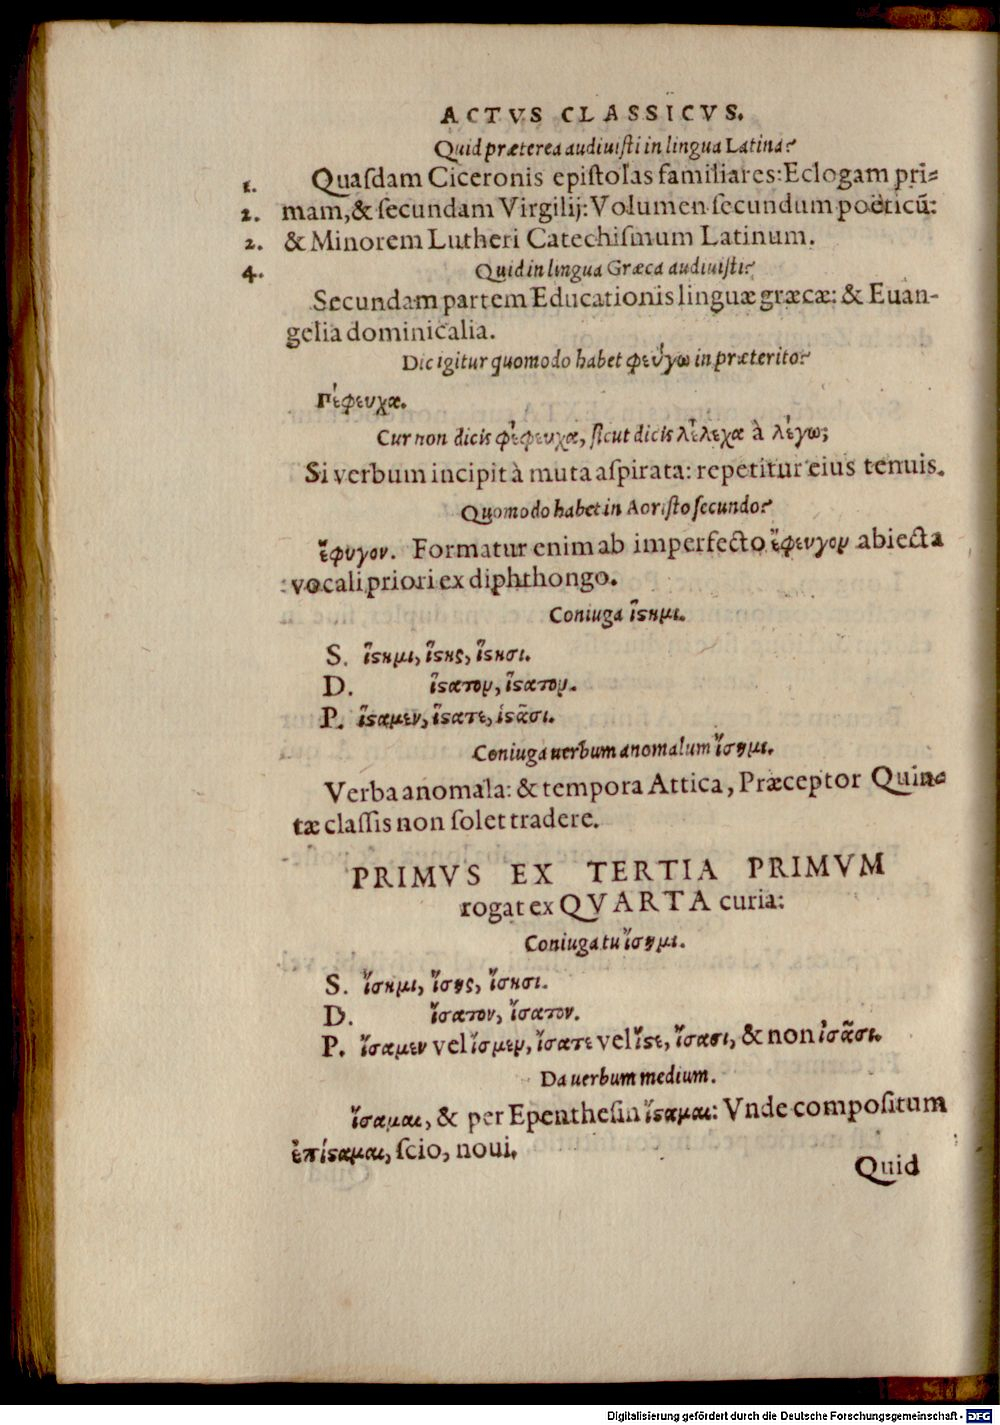 ACTVS CLASSICVS.
Quid præterea audiuisti in lingua Latina?
1. Quasdam Ciceronis epistolas familiares: Eclogam pri-
2. mam, & secundam Virgilij: Volumen secundum poëticũ:
2. & Minorem Lutheri Catechismum Latinum.
4. Quid in lingua Græca audiuisti?
Secundam partem Educationis linguæ græcæ: & Euan-
gelia dominicalia.
Dic igitur quomodo habet φεύγω in præterito?
Πέφευχα.
Cur non dicis φέφευχα, sicut dicis λέλεχα à λέγω;
Si verbum incipit à muta aspirata: repetitur eius tenuis.
Quomodo habet in Aoristo secundo?
ἔφυγον. Formatur enim ab imperfecto ἔφευγον abiecta
vocali priori ex diphthongo.
Coniuga ἵστημι.
S. ἵστημι, ἵστης, ἵστησι.
D. ἵστατον, ἵστατον.
P. ἵσταμεν, ἵστατε, ἱστᾶσι.
Coniuga uerbum anomalum ἴσημι.
Verba anomala: & tempora Attica, Præceptor Quin-
tæ classis non solet tradere.
PRIMVS EX TERTIA PRIMVM
rogat ex QVARTA curia:
Coniuga tu ἴσημι.
S. ἴσημι, ἴσης, ἴσησι.
D. ἴσατον, ἴσατον.
P. ἴσαμεν vel ἴσμεν, ἴσατε vel ἴστε, ἴσασι, & non ἰσᾶσι.
Da uerbum medium.
ἴσαμαι, & per Epenthesin ἵσταμαι: Vnde compositum
ἐπίσταμαι, scio, noui.
Quid
Digitalisierung gefördert durch die Deutsche Forschungsgemeinschaft - DFG